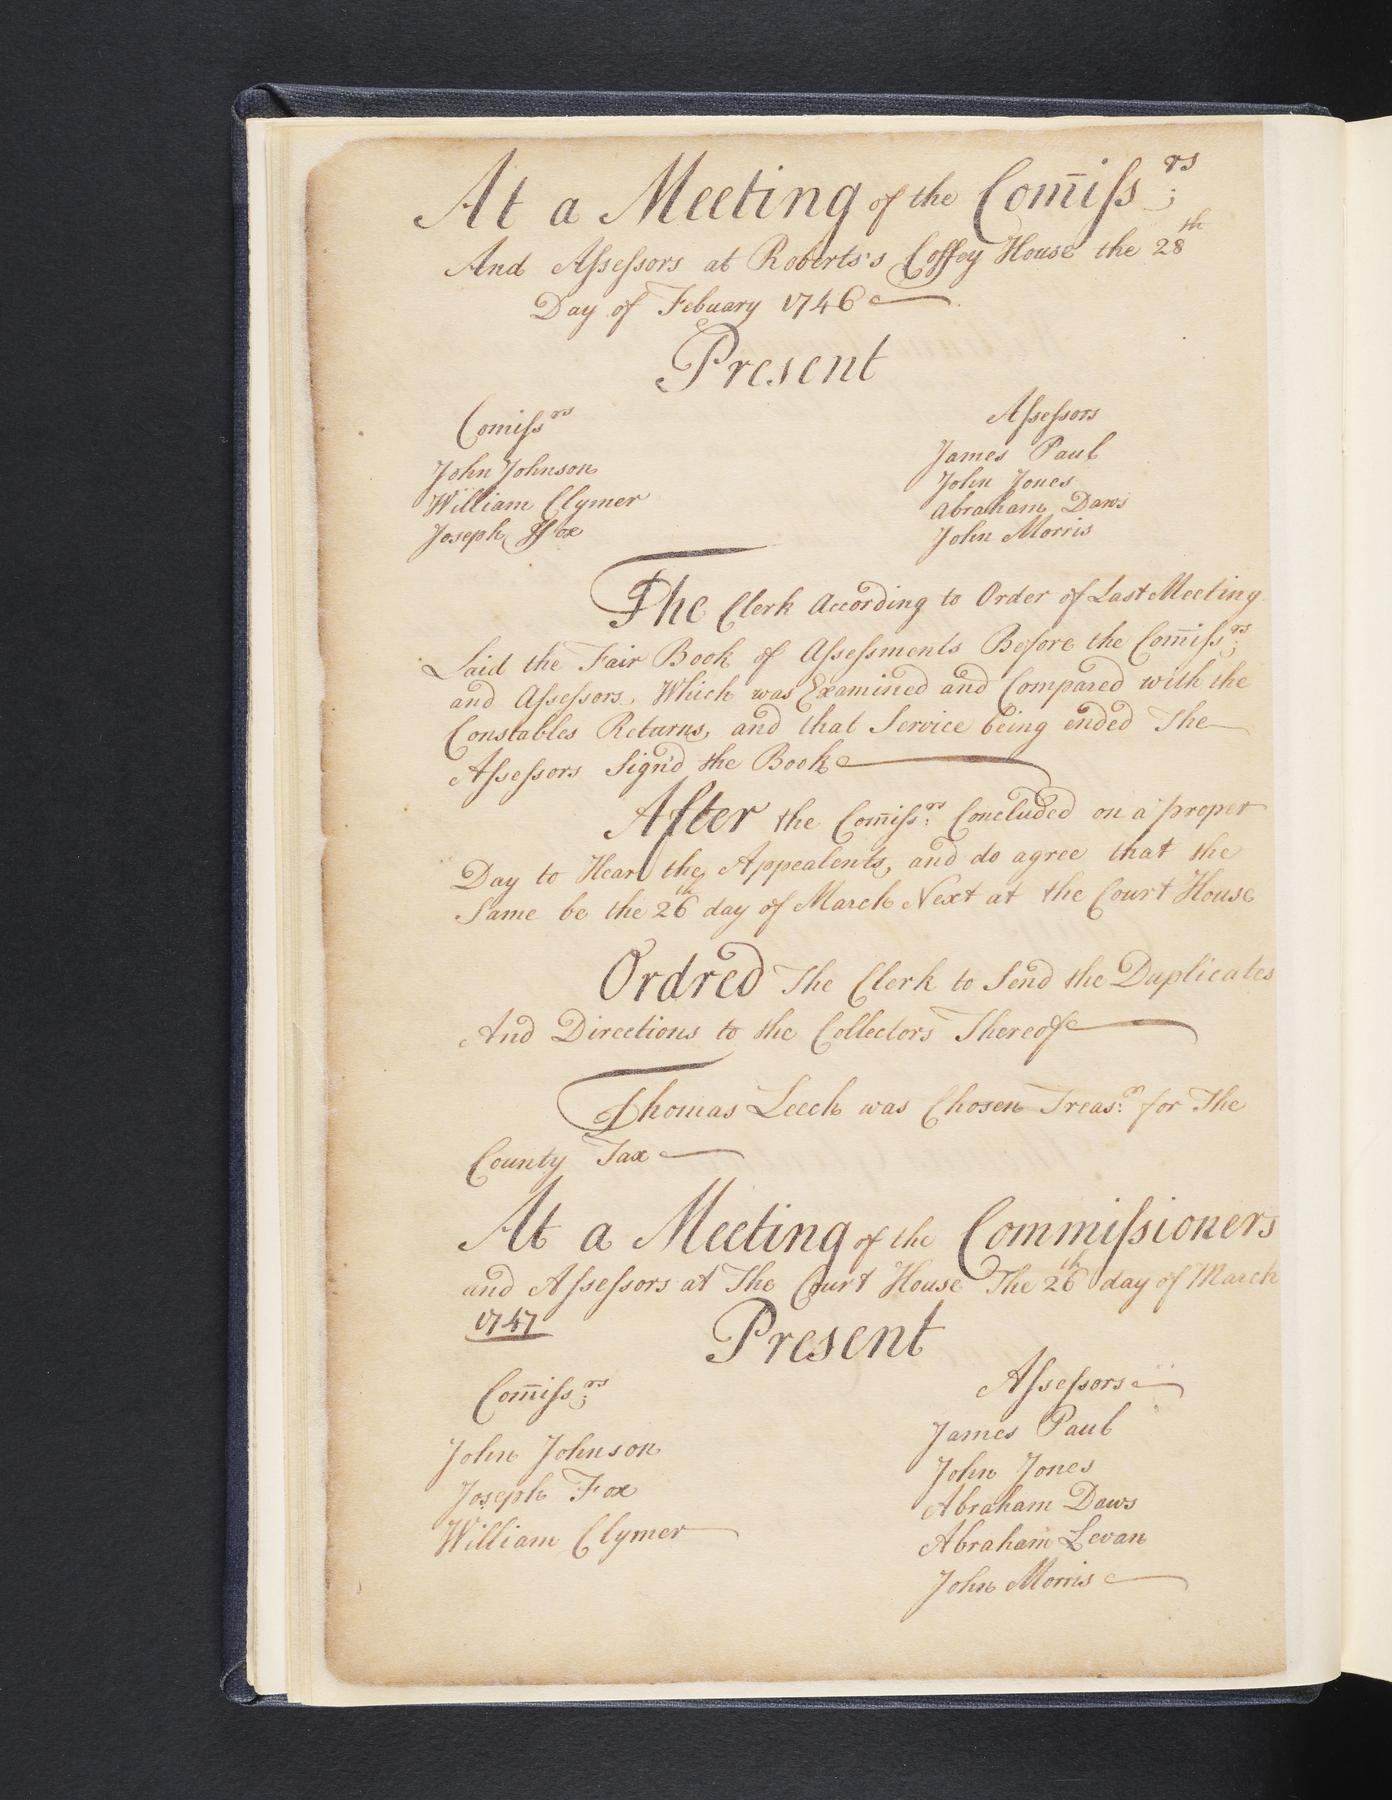 At a Meeting of the Com̄iſs;rs
And Aſseſsors at Roberts's Coffey House the 28th
Day of Febuary 1746
Present
Comiſsrs
John Johnson
William Clymer
Joseph Ffox
Aſseſsors
James Paul
John Jones
Abraham Daws
John Morris
The Clerk According to Order of Last Meeting
Laid the Fair Book of Aſseſsments Before the Com̄iſs;rs
and Aſseſsors, Which was Examined and Compared with the
Constables Returns, and that Service being ended The
Aſseſsors Sign'd the Book
After the Com̄iſs:rs Concluded on a proper
Day to Hear the Appealents, and do agree that the
Same be the 26th day of March Next at the Court House
Ordred The Clerk to Send the Duplicates
And Directions to the Collectors Thereof
Thomas Leech was Chosen Treas:r for The
County Tax
At a Meeting of the Commiſsioners
and Aſseſsors at The Court House The 26th day of March
1747
Present
Com̄iſs;rs
John Johnson
Joseph Fox
William Clymer
Aſseſsors
James Paul
John Jones
Abraham Daws
Abraham Levan
John Morris